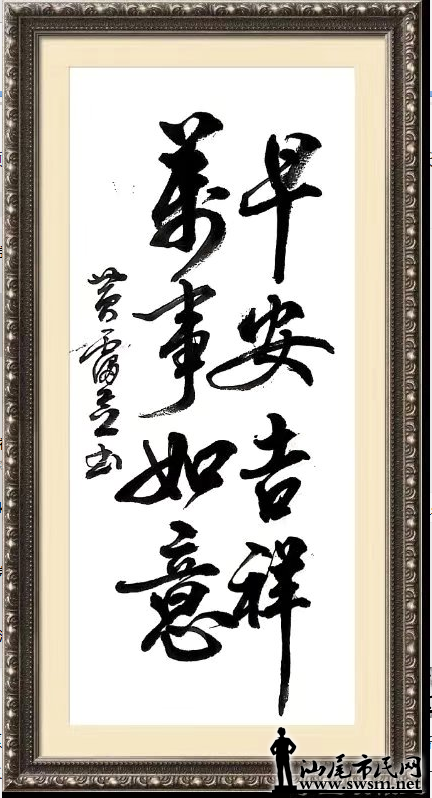 早安吉祥
萬事如意
黄雷立书
汕尾市民网
www.swsm.net